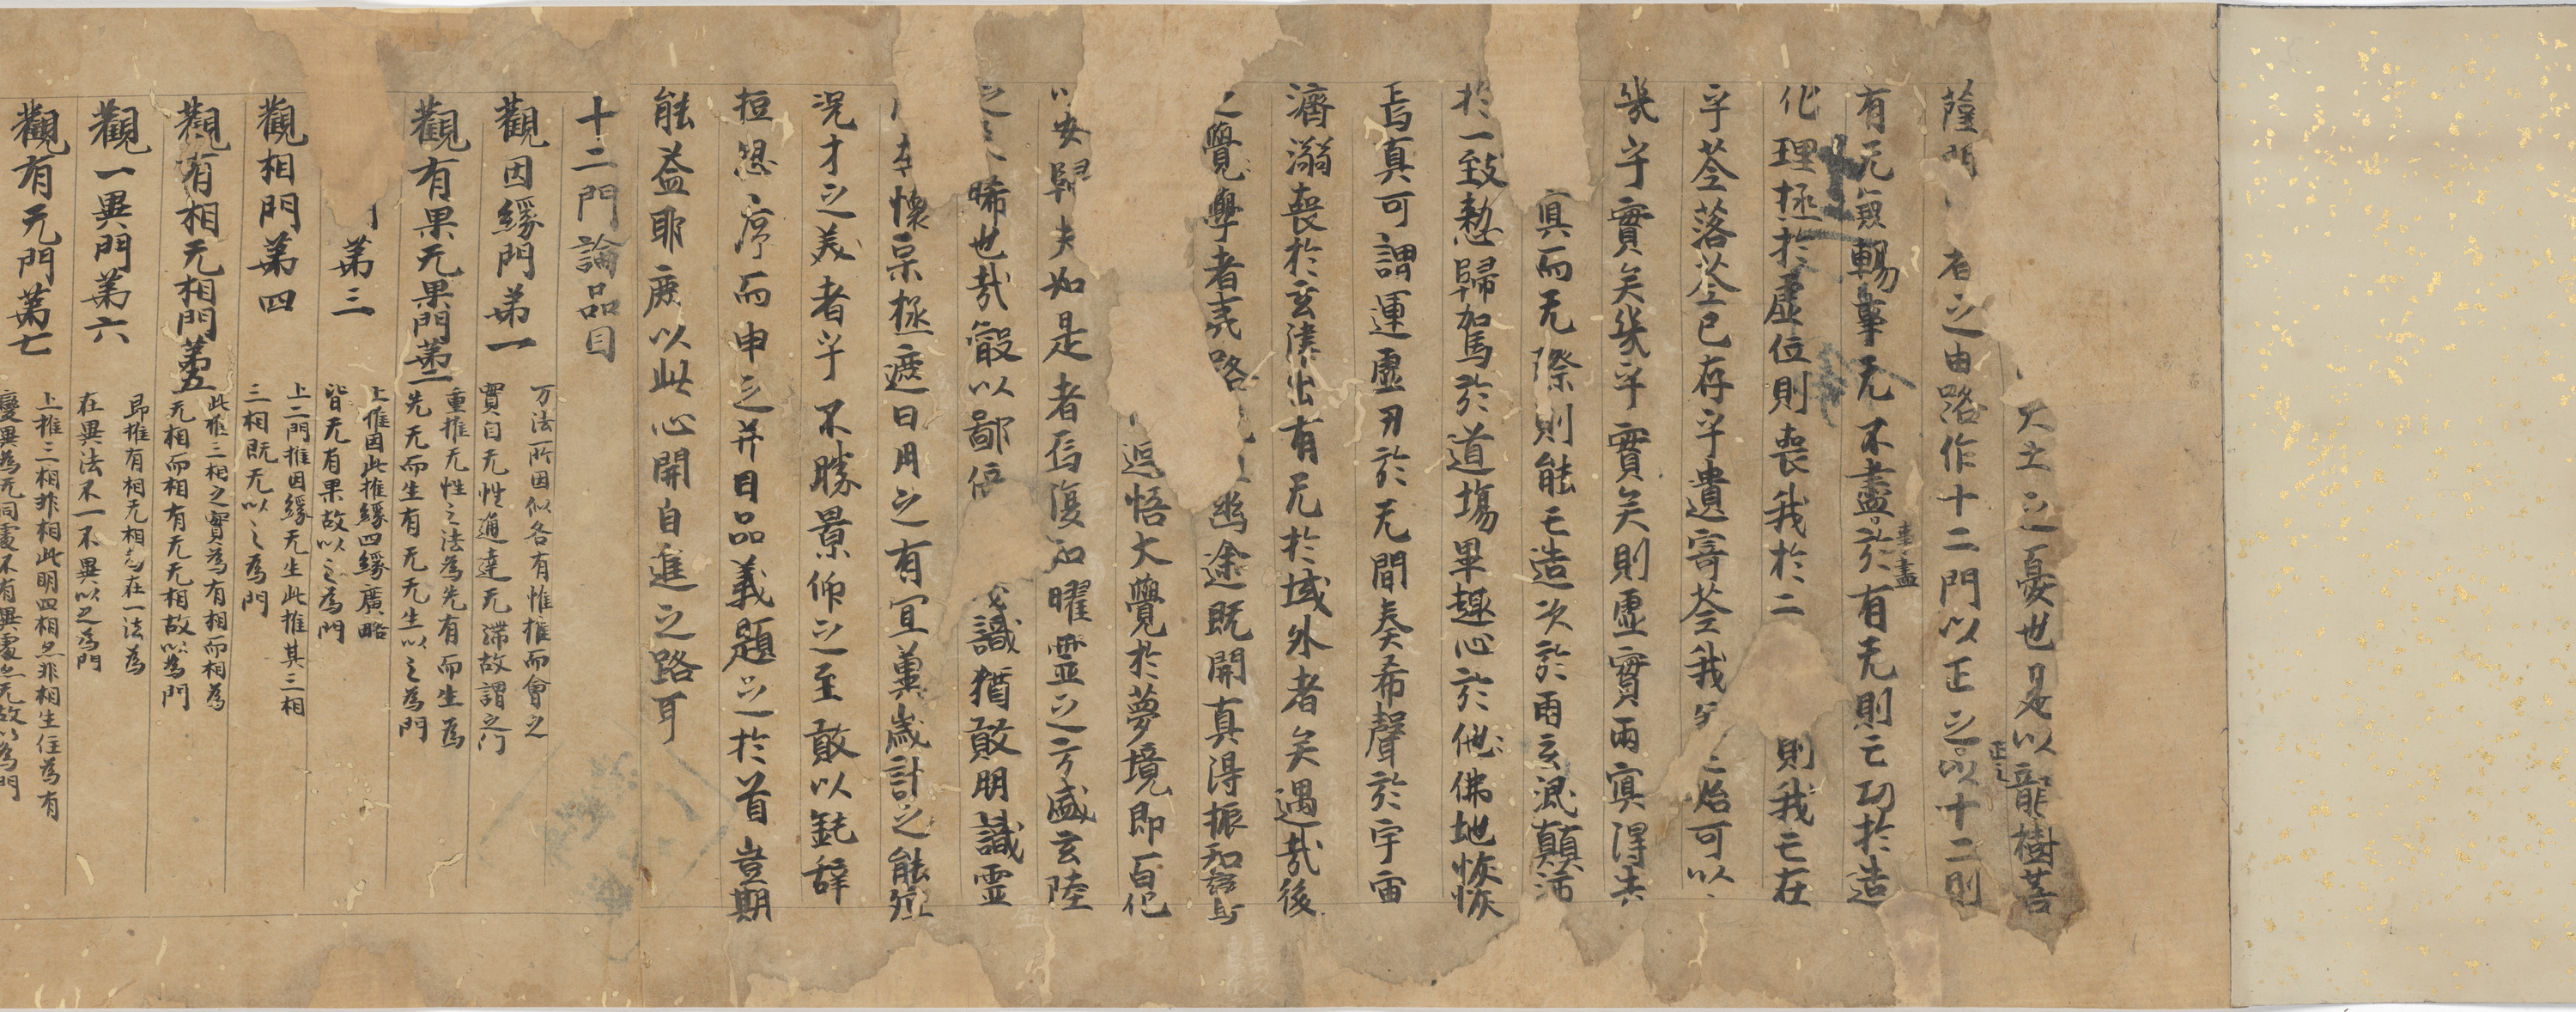 大士之憂也是以龍樹菩
薩 者之由路作十二門以正之正之以十二則
有无無暢事无不盡事盡於有无則亡功於造
化理極於虛位則喪我於二 則我亡在
乎荃落荃已存乎遺寄荃我 始可以
幾乎實矣幾乎實矣則虛實兩冥得失
冥而无際則能亡造次於兩玄泯顛沛
於一致整歸駕於道場畢趣心於佛地恢恢
焉真可謂運虛刃於无間奏希聲於宇宙
濟溺喪於玄津出有无於域外者矣遇哉後
之 覺學者夷路 幽途既開真得振和鸞与
逅悟大覺於夢境即百化
以安歸夫如是者焉復知曜靈之方盛玄陸
之 晞也哉叡以鄙倍 識猶敢朋識靈
本懷宗極遮日用之有宜冀歲計之能殖
况才之美者乎不勝景仰之至敢以鈍辞
短思序而申之并目品義題之於首豈期
能益耶庶以此心開自進之路耳
十二門論品目
觀因緣門第一 万法所因似各有惟推而會之
實自无性通達无滯故謂之门
觀有果无果門第二 重推无性之法為先有而生為
先无而生有无无生以之為門
第三 上推因此推緣四緣廣略
皆无有果故以之為門
觀相門第四 上二門推因緣无生此推其三相
三相既无以之為門
觀有相无相門第五 此推三相之實為有相而相為
无相而相有无无相故以為門
觀一異門第六 即推有相无相為在一法為
在異法不一不異以之為門
觀有无門第七 上推三相非相此明四相亦非相生住為有
變異為无同處不有異處亦无故以為門